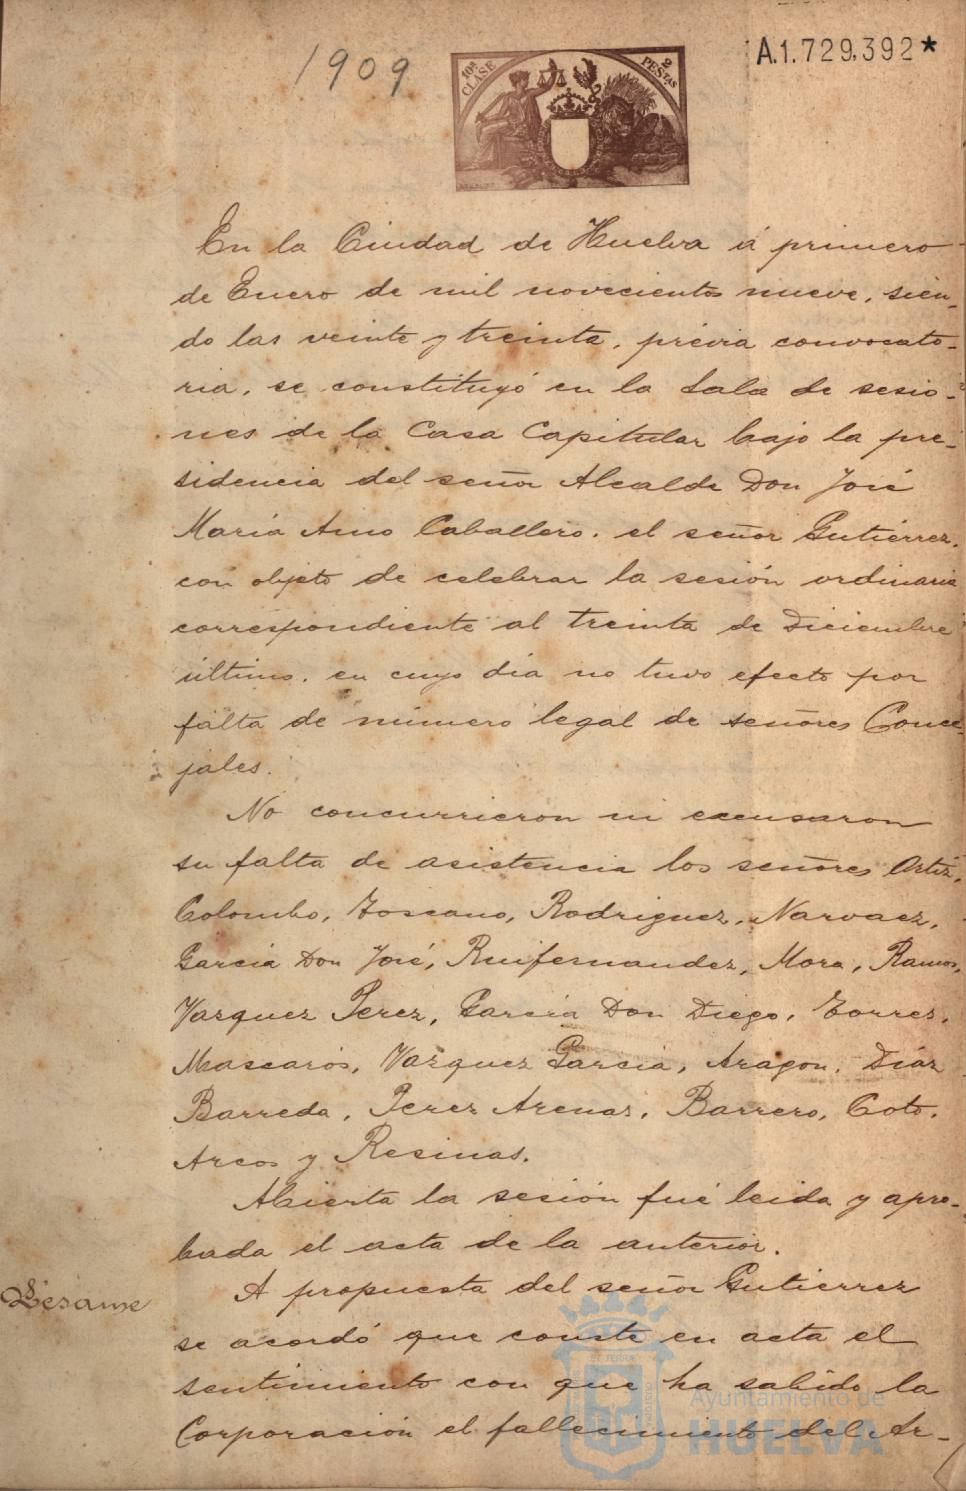 1909
10ª CLASE
2 PESTAS
A.1.729,392*
En la Ciudad de Huelva á primero
de Enero de mil novecientos nueve, sien-
do las veinte y treinta, prévia convocato-
ria, se constituyó en la Sala de sesio-
nes de la Casa Capitular bajo la pre-
sidencia del señor Alcalde Don José
María Amo Caballero. el señor Gutiérrez.
con objeto de celebrar la sesión ordinaria
correspondiente al treinta de Diciembre
último. en cuyo día no tuvo efecto por
falta de número legal de señores Conce-
jales.
No concurrieron ni excusaron
su falta de asistencia los señores Ortiz,
Colombo, Toscano, Rodriguez, Narvaez,
Garcia Don José, Ruifernandez, Mora, Ramos,
Vazquez Perez, García Don Diego, Torres,
Mascarós, Vazquez García, Aragon, Diáz
Barreda, Perez Arenas, Barrero, Coto,
Arcos y Resinas.
Abierta la sesión fué leida y apro-
bada el acta de la anterior.
Pésame
A propuesta del señor Gutierrez
se acordó que conste en acta el
sentimiento con que ha sabido la
Corporación el fallecimiento del Ar-
Ayuntamiento de
HUELVA